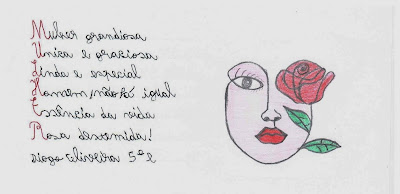 Mulher grandiosa
Unica e graciosa
Linda e especial
Homem, não igual
Essência da vida
Rosa destemida!
Diogo Oliveira 5º E